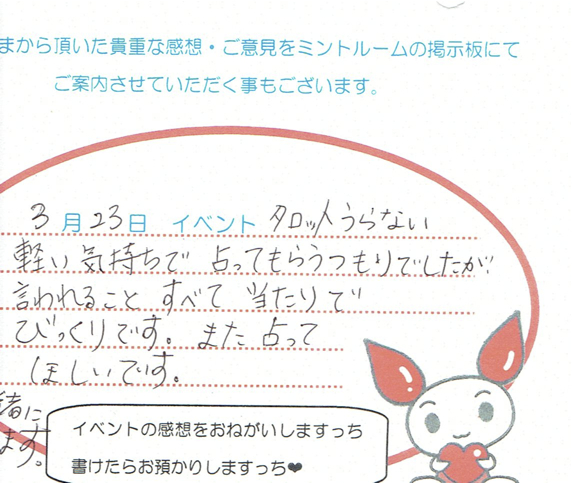 まから頂いた貴重な感想・ご意見をミントルームの掲示板にて
ご案内させていただく事もございます。
3月23日 イベント タロットうらない
軽い気持ちで 占ってもらうつもりでしたが
言われること すべて 当たりで
びっくりです。また 占って
ほしいです。
緒に
ます。
イベントの感想をおねがいしますっち
書けたらお預かりしますっち❤